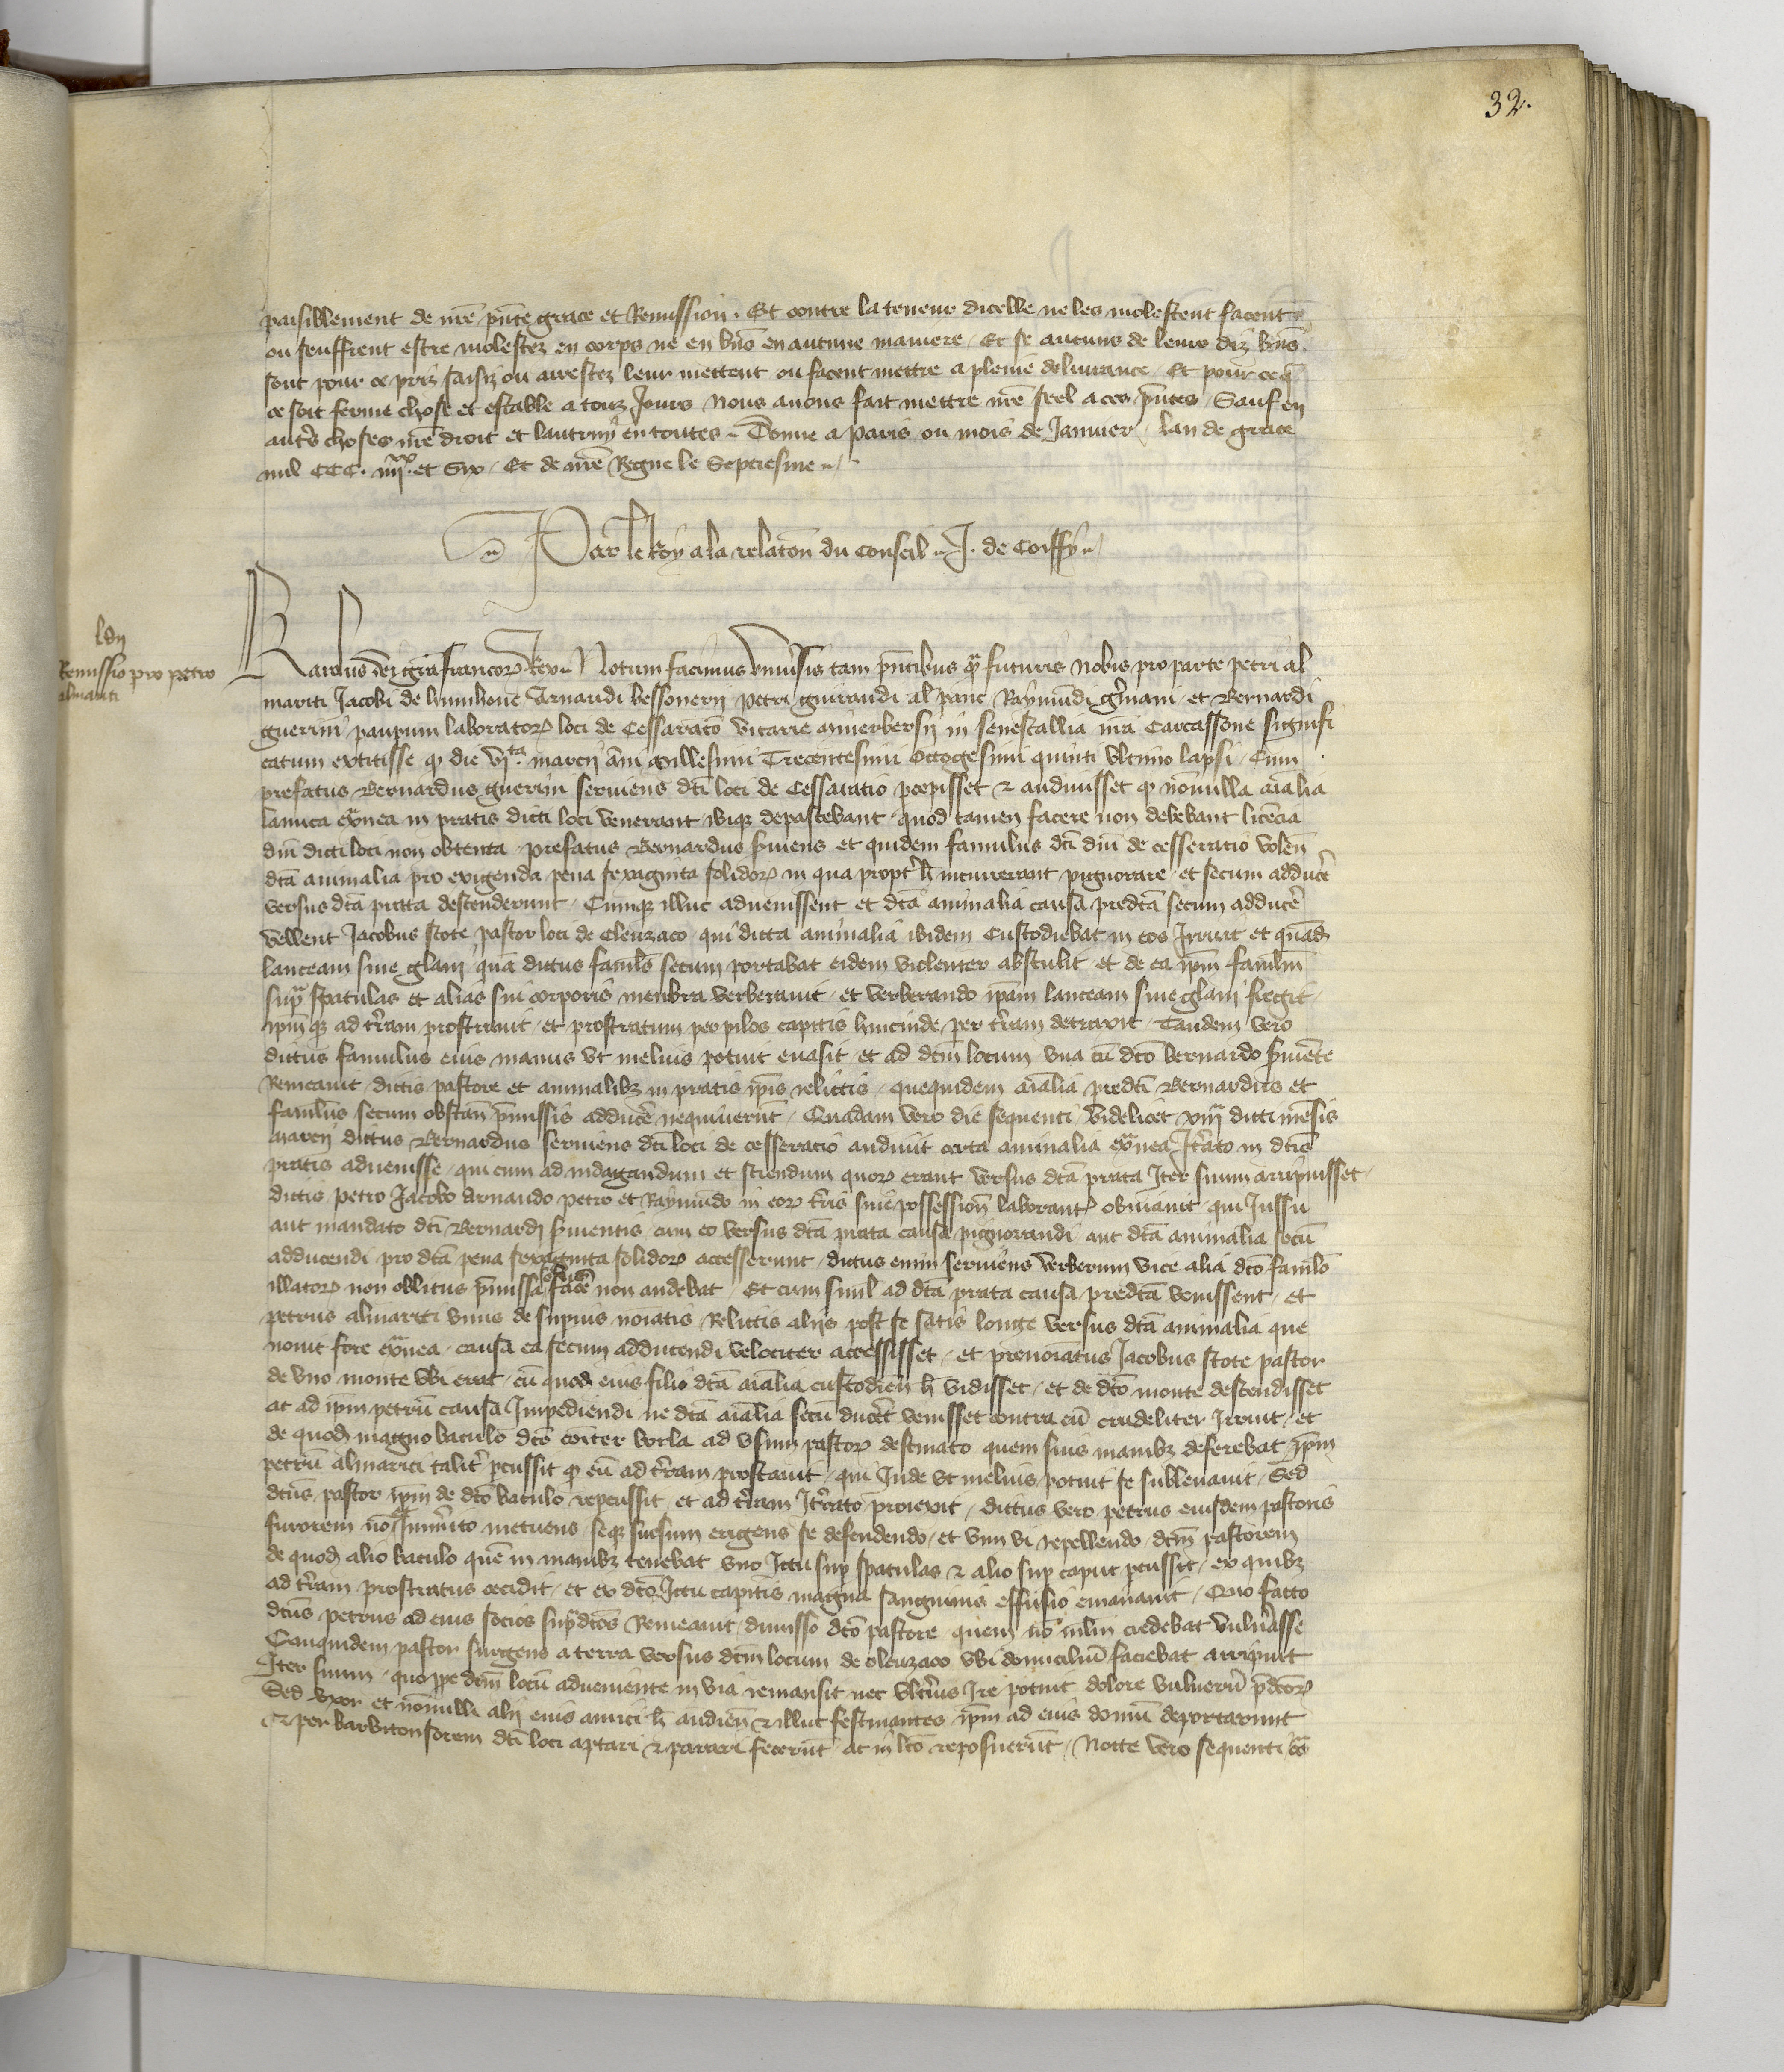 32.
paisiblement de nre pnte grace et Remission. Et contre la teneur dicelle ne les molestent facent
ou seuffrent estre molestez en corps ne en bns en aucune maniere. Et se aucuns de leurs diz bns
sont pour ce pris saisiz ou arrestez leur mettent ou facent mettre a pleine deliurance. Et pour ce q
ce soit ferme chose et estable a touz Jours Nous auons fait mettre nre seel a ces pntes. Sauf en
autrs choses nre droit et lautruy en toutes. Donne a Paris ou mois de Januier lan de grace
mil CCC. iiijxx. et Six. Et de nre Regne le Septiesme.
Par le Roy a la relaton du Conseil. J. de Coiffy
Remissio pro petro
almarici
Karolus dei gra francor Rex. Notum facimus vniuersis tam pntibus q futuris Nobis pro parte petri al
marici Jacobi de Arnaudi bessonerij Petri guiraudi al panc Raymundi et Bernardi
guerini paupum laborator loci de Cessaracio vicarie in senescallia nra Carcassone signifi
catum extitisse q die vjta. marcij anni Millesimi Trecentesimi Octogesimi quinti vltimo lapsi. Cum
prefatus Bernardus guerini seruiens dci loci de Cessaratio pcepisset et audiuisset q nonnulla aialia
lanuta exnea in pratis dicti loci venerant ibiq depascebant quod tamen facere non debebant licencia
dni dicti loci non obtenta. prefatus Bernardus suiens et quidem famulus dci dni de cesseratio volen
dca animalia pro exigenda pena sexaginta solidor in qua propt h incurrerant pignorare et secum adduce
versus dca prata descenderunt. Cumq illuc aduenissent et dca animalia causa predca secum adduce
vellent Jacobus stote pastor loci de Olenzaco qui dicta animalia ibidem Custodiebat in eos Irruit et quad
lanceam siue glaui qua dictus famls secum portabat eidem violenter abstulit et de ea ipm famlm
sup spatulas et alias sui corporis membra verberauit et verberando ipam lanceam siue glaui fregit
ipmq ad tram prostrauit et prostratum per pilos capitis hincinde per tram detraxit. Tandem vero
dictus famulus eius manus vt melius potuit euasit et ad dcm locum vna cu dco bernardo suiente
Remeauit dictis pastore et animalibz in pratis ipis relictis. quequidem aialia predci Bernardus et
famlus secum obstan pmissis adduce nequiuerut. Quadam vero die sequenti videlicet xiiij dicti mesis
marcij dictus Bernardus seruiens dci loci de cesseratio audiuit certa animalia exnea Itrato in dcis
pratis aduenisse. qui cum ad indagandum et sciendum quor erant versus dca prata Iter suum arripuisset
dictis Petro Jacobo Arnaudo petro et Raymundo in eor tris siue possession laborant obuiauit qui Jussu
aut mandato dci Bernardi suientis cum eo versus dca prata causa pignorandi aut dca animalia secu
adducendi pro dca pena sexaginta solidor accesserunt. dictus enim seruiens verberum vice alia dco famlo
illator non oblitus pmissa solus face non audebat. Et cum siml ad dca prata causa predca venissent et
Petrus almarici vnus de supius noiatis Relictis alijs post se satis longe versus dca animalia que
nouit fore exnea causa ea secum adducendi velociter accessisset et prenoiatus Jacobus stote pastor
de vno monte vbi erat cu quod eius filio dca aialia custodien h vidisset et de dco monte descendisset
ac ad ipm petru causa Impediendi ne dca aialia secu ducet venisset contra eu crudeliter Irruit. et
de quod magno baculo dco coiter borla ad vsum pastor destinato quem suis manibz deferebat ipm
petru almarici talit pcussit q eu ad tram prostrauit. qui Inde vt melius potuit se subleuauit. Sed
dcus pastor ipm de dco baculo repcussit et ad tram Itrato proiecit. dictus vero Petrus eiusdem pastoris
furorem no Immito metuens seq sursum erigens se defendendo et vim vi repellendo dcm pastorem
de quod alio baculo que in manibz tenebat vno Ictu sup spatulas et alio sup caput pcussit. ex quibz
ad tram prostratus cecidit et ex dco Ictu capitis magna sanguinis effusio emanauit. Quo facto
dcus Petrus ad eius socios supdcos Remeauit dimisso dco pastore quem credebat vulnasse
Quiquidem pastor surgens a terra versus dcm locum de olenzaco vbi domiciliu faciebat arripuit
Iter suum. quo ppe dcm locu adueniente in via remansit nec vltius Ire potuit dolore vulneru pdcor
Sed vxor et nonnulli alij eius amici h audien et illuc festinantes ipm ad eius domu deportarunt
et per barbitonsorem dci loci aptari et parari fecerut ac in lco reposuerut. Nocte vero sequenti